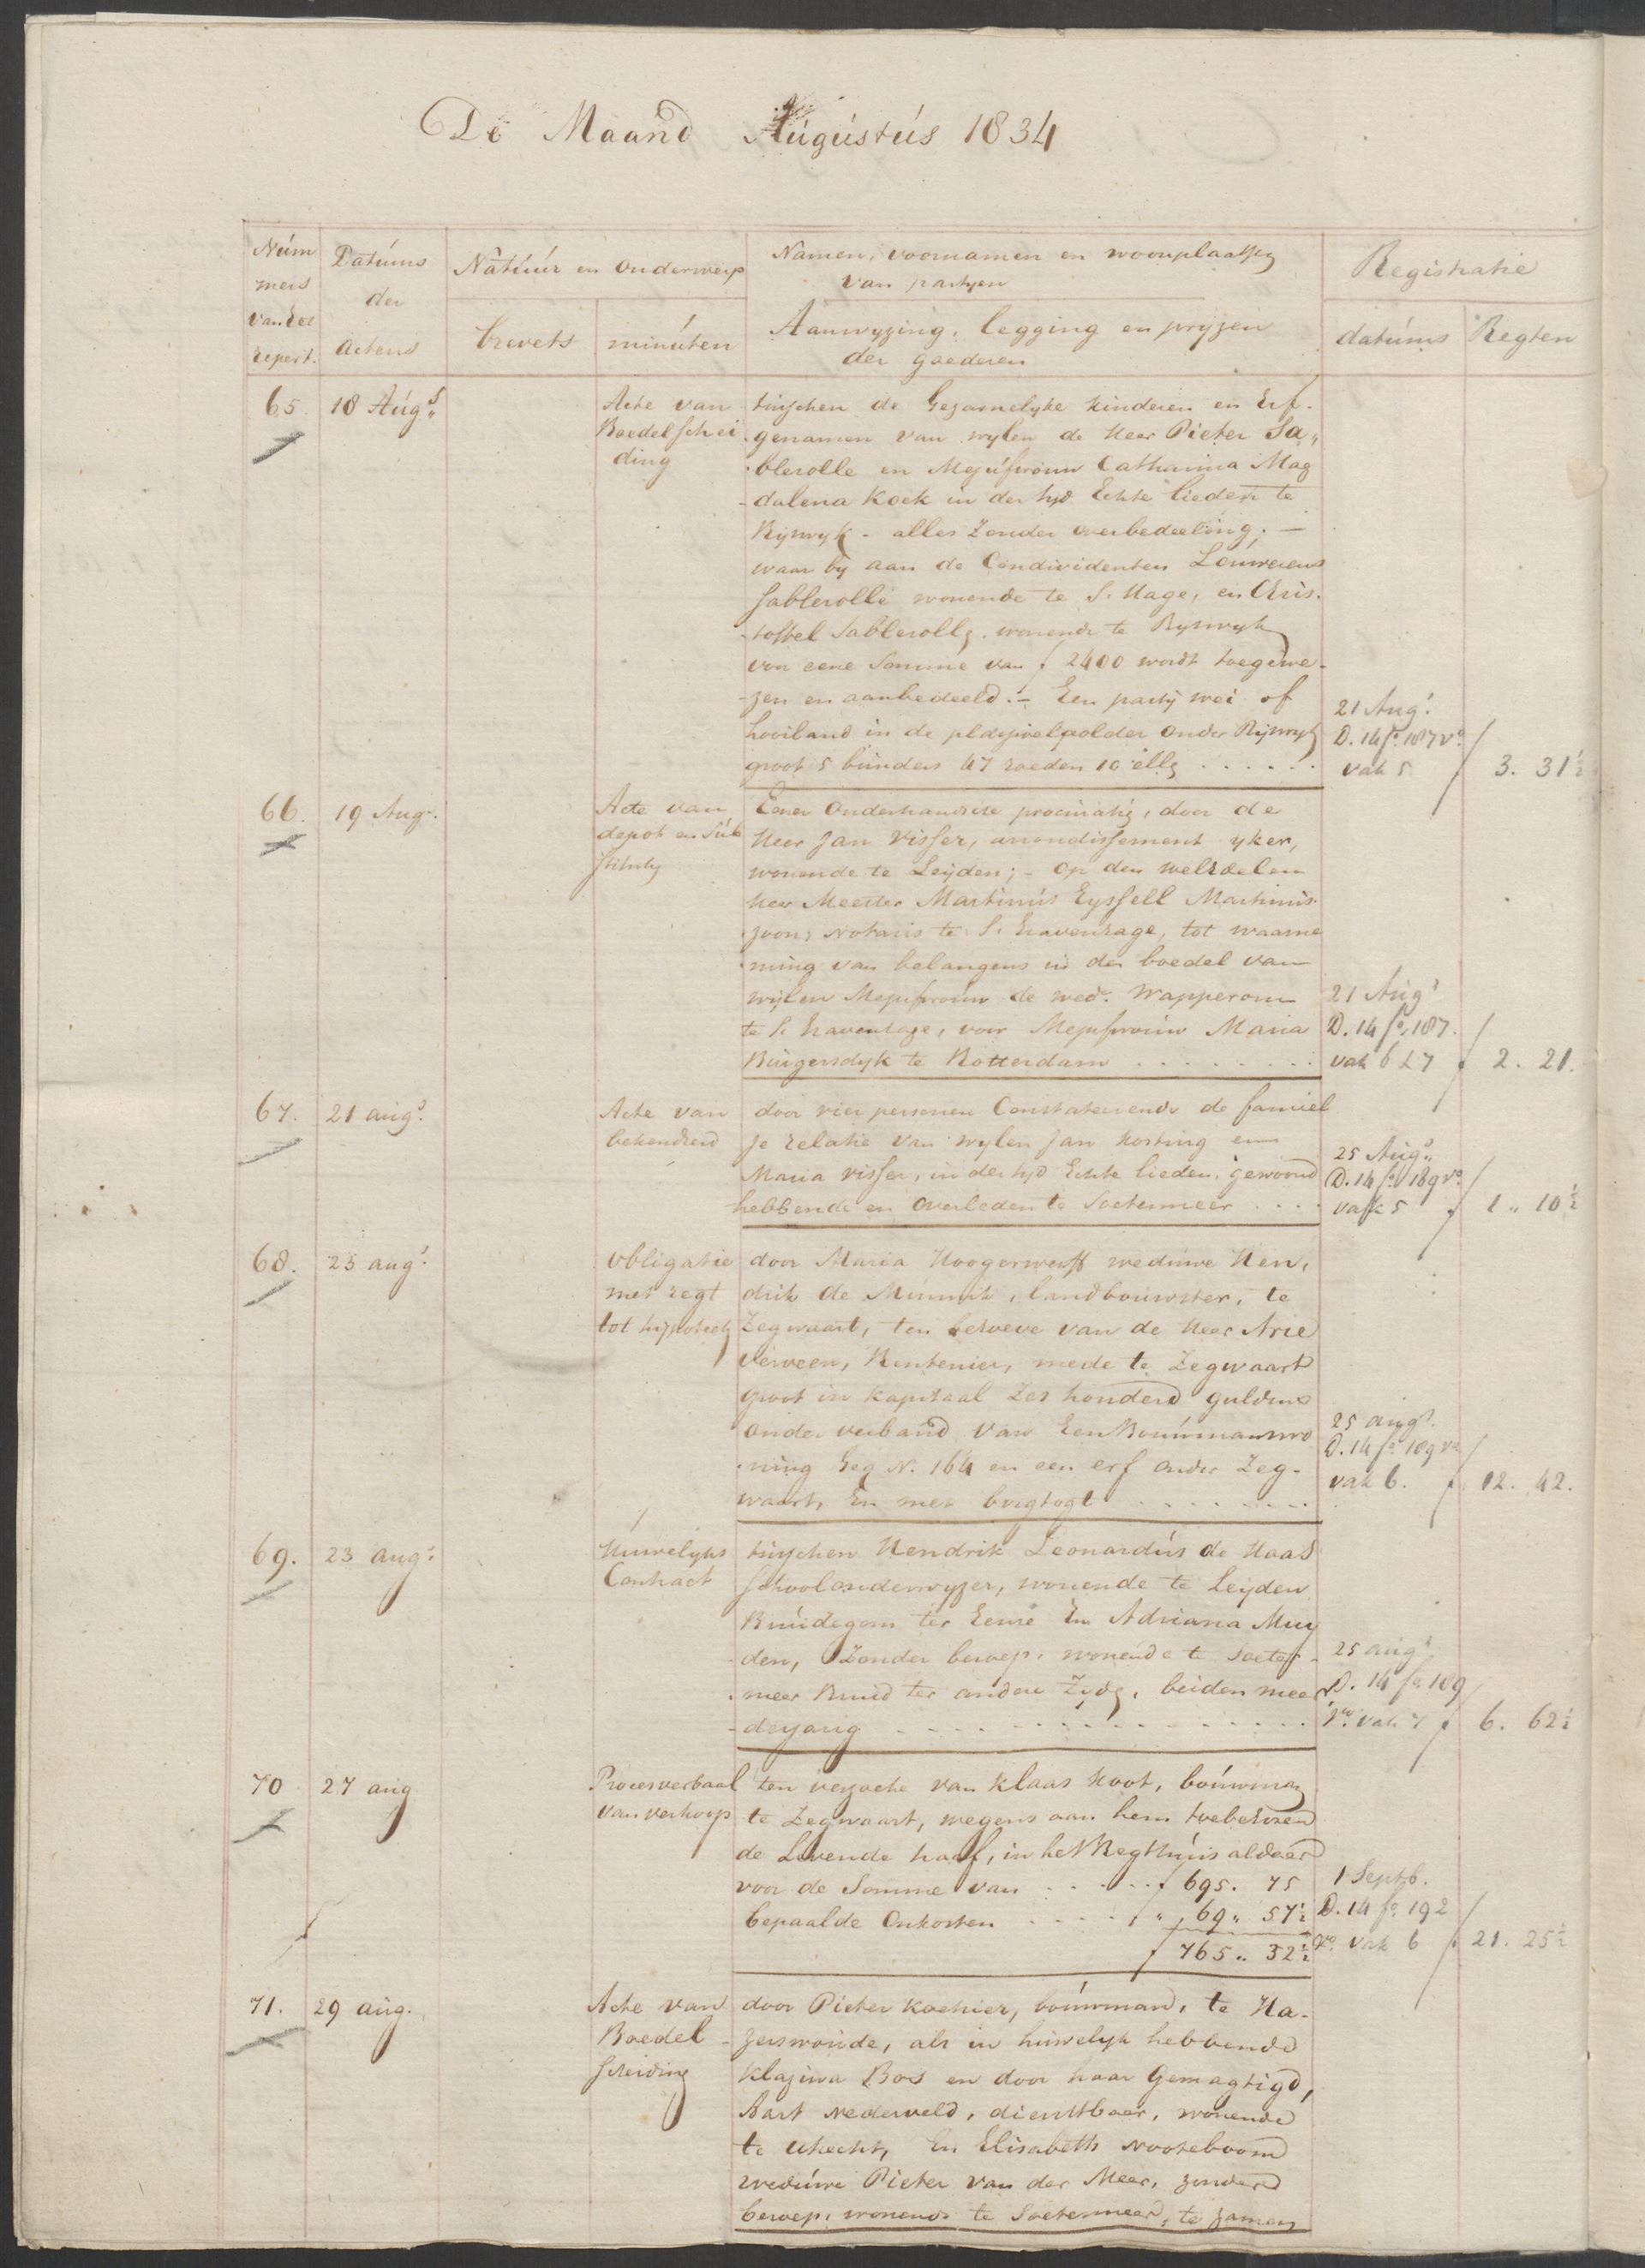 De Maand Augustus 1834
Num
mers
van het
repert.
Datums
der
actens
Natuur en onderwerp
brevets
minuten
Namen, voornamen en woonplaatsen
van partyen
Aanwyzing, legging en pryzen
der goederen
Registratie
datums
Regten
65. 18 Augs.
Acte van
Boedelschei
ding
tusschen de Gezamelyke kinderen en Erf-
genamen van wylen de Heer Pieter Sa„
blerolle en Mejufvrouw Catharina Mag
dalena Kock in der tyd Echte lieden te
Ryswyk - alles Zonder overbedeeling; -
waar by aan de Condividenten Louwerens
Sablerolle wonende te S. Hage, en Chris.
toffel Sablerolle, wonende te Ryswyk
voor eene Somme van f 2400 wordt toegewe-
zen en aanbedeeld. - Een party wei of
hooiland in de polder onder Ryswyk
groot 5 bunders 47 roeden 10 elle . . . . . .
21 Augs.
D. 14 fo. 187 vo.
vak 5
f 3. 31½
66. 19 Augs.
Acte van
depot en sub
stitutie
Eener Onderhandsche procuratie, door de
Heer Jan Visser, arrondissement yker,
wonende te Leyden; - op den weledelen
Heer Meester Martinus Eyssell Martinus
zoon; Notaris te S. Gravenhage, tot waarne
ming van belangens in den boedel van
wijlen Mejufvrouw de wed. Wapperom
te S. Gravenhage, voor Mejufvrouw Maria
Burgersdyk te Rotterdam . . . . . . . .
21 Augs
D. 14 fo. 187.
vak 6 & 7
f 2. 21.
67. 21 augs.
Acte van
bekendheid
door vier personen Constateerende de famiel
je relatie van wylen Jan Korting en
Maria Visser, in der tyd Echte lieden, gewoond
hebbende en overleden te Soetermeer . . . .
25 Augs.
D. 14 fo. 189 vo.
vak 5
f 1„ 10½
68. 23 augs.
Obligatie
met regt
tot hypotheek
door Maria Hoogerwerff weduwe Hen,
drik de Munnik, landbouwster, te
Zegwaart, ten behoeve van de Heer Arie
Verveen, Rentenier, mede te Zegwaart
groot in kapitaal Zes honderd guldens
onder verband van Een Bouwmanswo
ning Geq N. 164 en een erf onder Zeg-
waart, En met borgtogt . . . . . . . .
25 augs.
D. 14 fo. 189 vo.
vak 6.
f 12. 42.
69. 23 augs.
Huwelyks
Contract
tusschen Hendrik Leonardus de Haas
schoolonderwyzer, wonende te Leyden
Bruidegom ter Eenre En Adriana Muy
den, Zonder beroep, wonende te Soeter-
meer Bruid ter andere Zyde, beiden meer
derjarig . . . . . . . . . . . .
25 augs
D. 14 fo. 189
vo. vak 7
f 6. 62½
70 27 aug
Procesverbaal
van verkoop
ten verzoeke van Klaas Koot, bouwman
te Zegwaart, wegens aan hem toebehoren
de Levende haaf, in het Regthuis aldaar
voor de Somme van . . . . . f 695. 75
bepaalde Onkosten . . . . . „ 69„ 57½
f 765„ 32½
1 Septb.
D. 14 fo. 192
vo. vak 6
f 21. 25½
71. 29 aug.
Acte van
Boedel-
scheiding
door Pieter Koehier, bouwman, te Ha-
zerswoude, als in huwelyk hebbende
Klazina Bos en door haar Gemagtigd,
Aart Nederveld, dienstbaar, wonende
te Utrecht, En Elisabeth Nooteboom
weduwe Pieter van der Meer, zonder
beroep, wonende te Soetermeer, te zamen